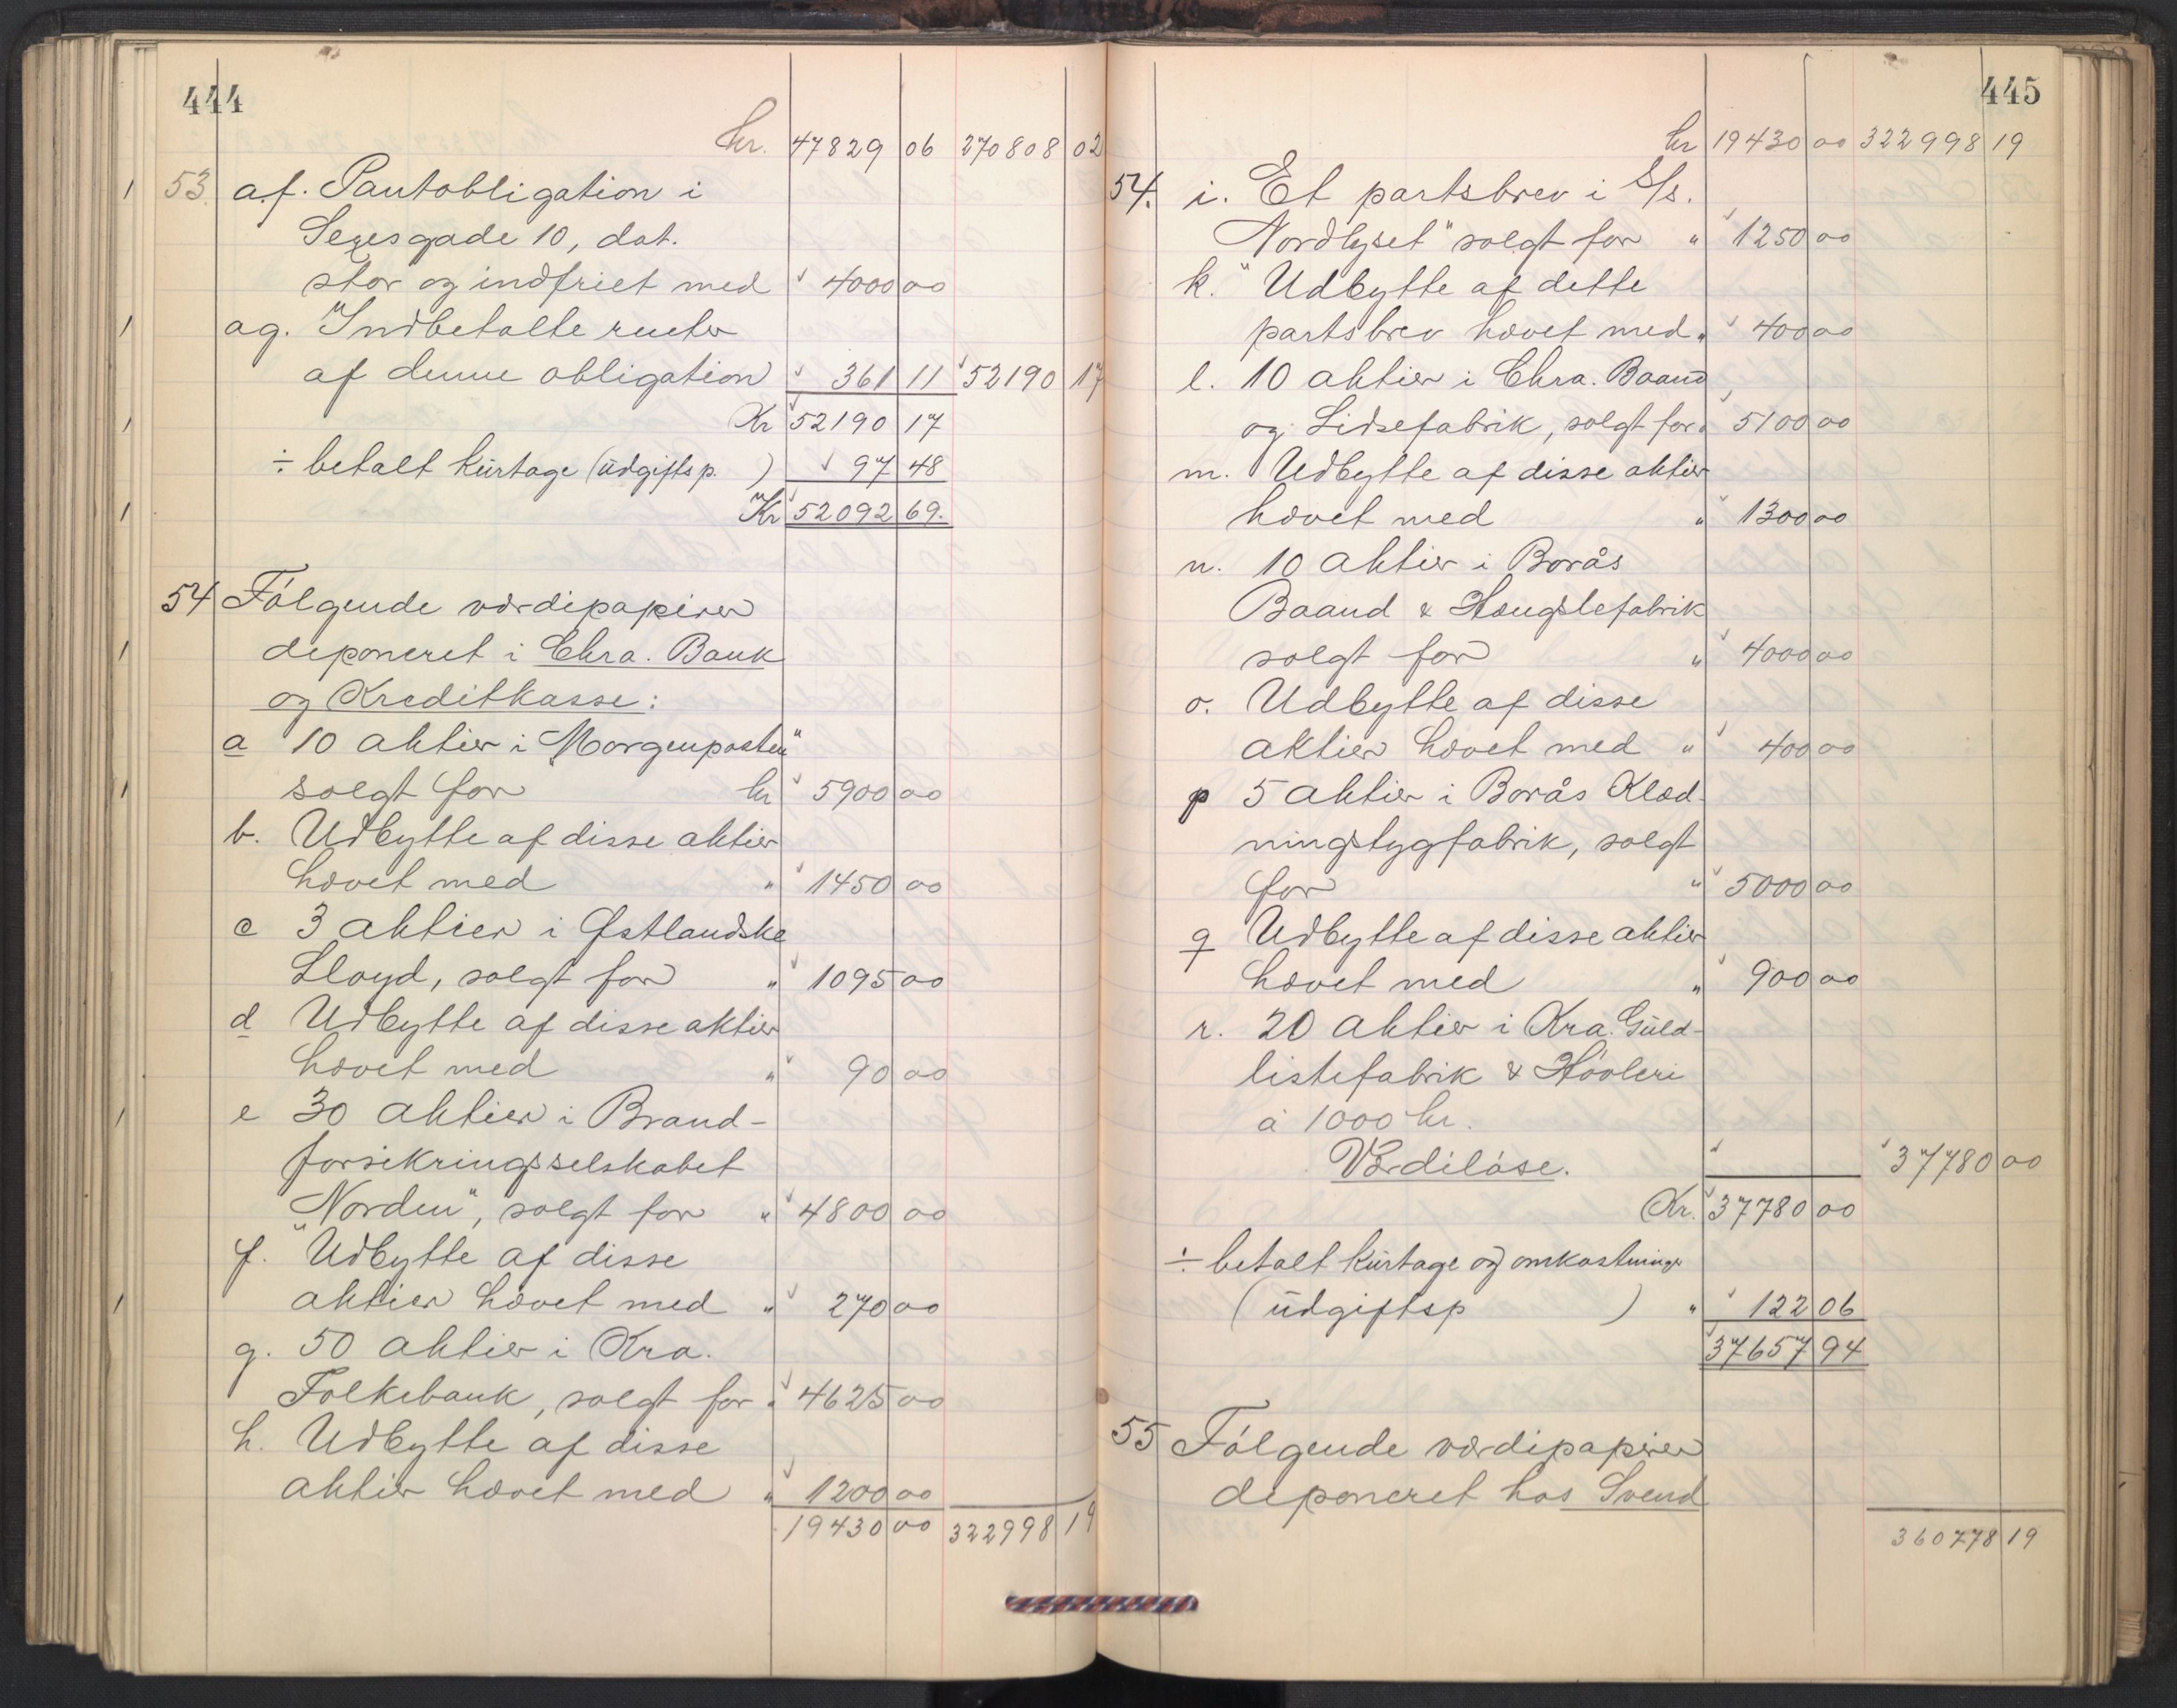 444
kr. 47829 06 270808 02
53. a.f. Pantobligation i
Sexesgade 10, dat.
stor og indfriet med " 4000 00
ag. Indbetalte renter
af denne obligation " 361 11 52190 17
Kr 52190 17
÷ betalt kurtage (udgiftsp. ) 97 48
Kr 52092 69.
54 Følgende værdipapirer
deponeret i Chra. Bank
og Kreditkasse:
a 10 aktier i "Morgenposten"
solgt for kr 5900 00
b. Udbytte af disse aktier
hævet med " 1450 00
c 3 aktier i Østlandske
Lloyd, solgt for " 1095 00
d Udbytte af disse aktier
hævet med " 90 00
e 30 aktier i Brand-
forsikringsselskabet
"Norden", solgt for " 4800 00
f. Udbytte af disse
aktier hævet med " 270 00
g. 50 aktier i Kra.
Folkebank, solgt for " 4625 00
h. Udbytte af disse
aktier hævet med " 1200 00
19430 00 322998 19
445
kr 19430 00 322998 19
54. i. Et partsbrev i S/s.
"Nordlyset" solgt for " 1250 00
k. Udbytte af dette
partsbrev hævet med " 400 00
l. 10 aktier i Chra. Baand
og Lidsefabrik, solgt for " 5100 00
m. Udbytte af disse aktier
hævet med " 1300 00
n. 10 aktier i Borås
Baand & Hængslefabrik
solgt for " 4000 00
o. Udbytte af disse
aktier hævet med " 400 00
p 5 aktier i Borås Klæd-
ningstygfabrik, solgt
for " 5000 00
q Udbytte af disse aktier
hævet med " 900 00
r. 20 aktier i Kra. Guld-
listefabrik & Høvleri
à 1000 kr.
Værdiløse. 37780 00
Kr. 37780 00
÷ betalt kurtage og omkostninger
(udgiftsp ) " 122 06
37657 94
55 Følgende værdipapirer
deponeret hos Svend
360778 19